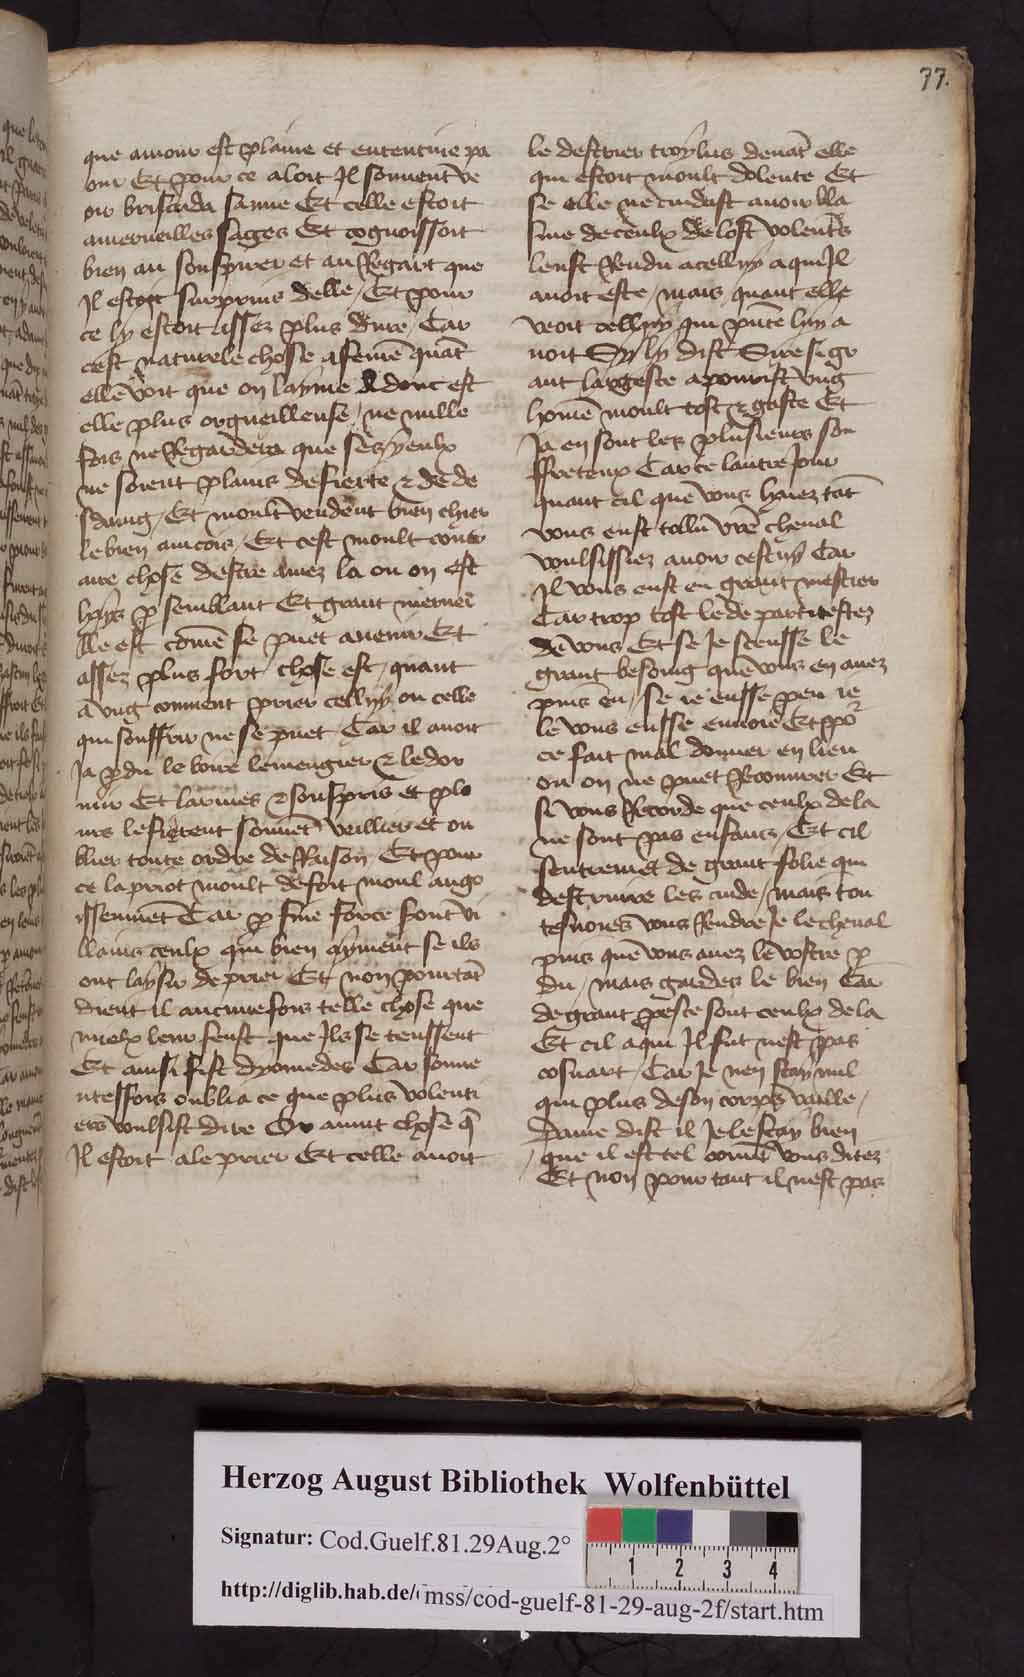 77.
que amour est plaine et ententiue pa
our Et pour ce aloit Il souuent ve
oir briseida sanue Et celle estoit
amerueilles sages Et cognoissoit
bien au souspirer et au Regart que
Il estoit surprins delle / Et pour
ce ly estoit assez plus dure / Car
cest naturele chosse a femē quāt
ellē voit que on layme Adonc est
elle plus orgueilleuse / ne nulle
fois ne Regardera que ses yeulx
ne soient plains de fierte & de de
sdaing / Et moult vendent bien chier
le bien aincois / Et cest moult contr
aire chose destre amez la ou on est
hays p semblant Et grant meruei
lle est comē se puet auenir Et
assez plus fort chose est / quant
a vng conuient prier celluy ou celle
qui souffrir ne se puet Car il auoit
Ja pdu le boire le mengier & le dor
mir Et larmes & souspris et plo
urs le fierent souuet veillier et ou
blier toute ordre de Raison Et pour
ce la priot moult de foit moul ango
issemmēt Car p fine force font vi
llains ceulx qui bien ayment se ils
ont laysir de prier Et non pourtāt
dient il aucunefois telle chose que
mielx leur feust que Ils se teussent
Et ainsi fist dyomedes Car souue
nteffois oublia ce que plus volenti
ers voulsist dire Or auint chose q̄
Il estoit ale prier Et celle auoit
le destrier troylus deuāt elle
qui estoit moult dolente Et
se elle ne cuidast auoir bla
sme de ceulx de lost volentrs
leust Rendu a celluy a qui Il
auoit este / mais quant elle
veoit celluy qui pnte luy a
uoit Sy ly dist Sire si gr
ant largesce apourist vng
homē moult tost & gaste Et
Ja en sont les plusieurs sou
ffreteux Car ce lautre Jour
quant cil que vous haiez tāt
vous eust tollu vrē cheual
voulsissiez auoir cestuy Car
Il vous eust eu grant mestier
Car trop tost le de partistestez
dē vous Et se Je sceusse le
grant besoing que vous en auez
puis en / se ie eusse peu ie
le vous eusse enuoie Et po
ce fait mal donner en lieu
ou on ne puet Recouurer Et
si vous Recorde que ceulx de la
ne sont pas enfans / Et cil
sentremet de grant folie qui
destruire les cuide / mais tou
tesuoies vous Rendre Je le cheual
puis que vous auez le vostre p
du / mais gardes le bien Car
de grant poeste sont ceulx de la
Et cil a qui Il fut nest pas
cosuart / Car Je nen scay nul
qui plus de son corps vaille /
Dame dist il Je le scay bien
/ que il est tel comēt vous ditez
Et non pour tant il nest pas
Herzog August Bibliothek Wolfenbüttel
Signatur: Cod.Guelf.81.29Aug.2°
1 2 3 4
http://diglib.hab.de/mss/cod-guelf-81-29-aug-2f/start.htm